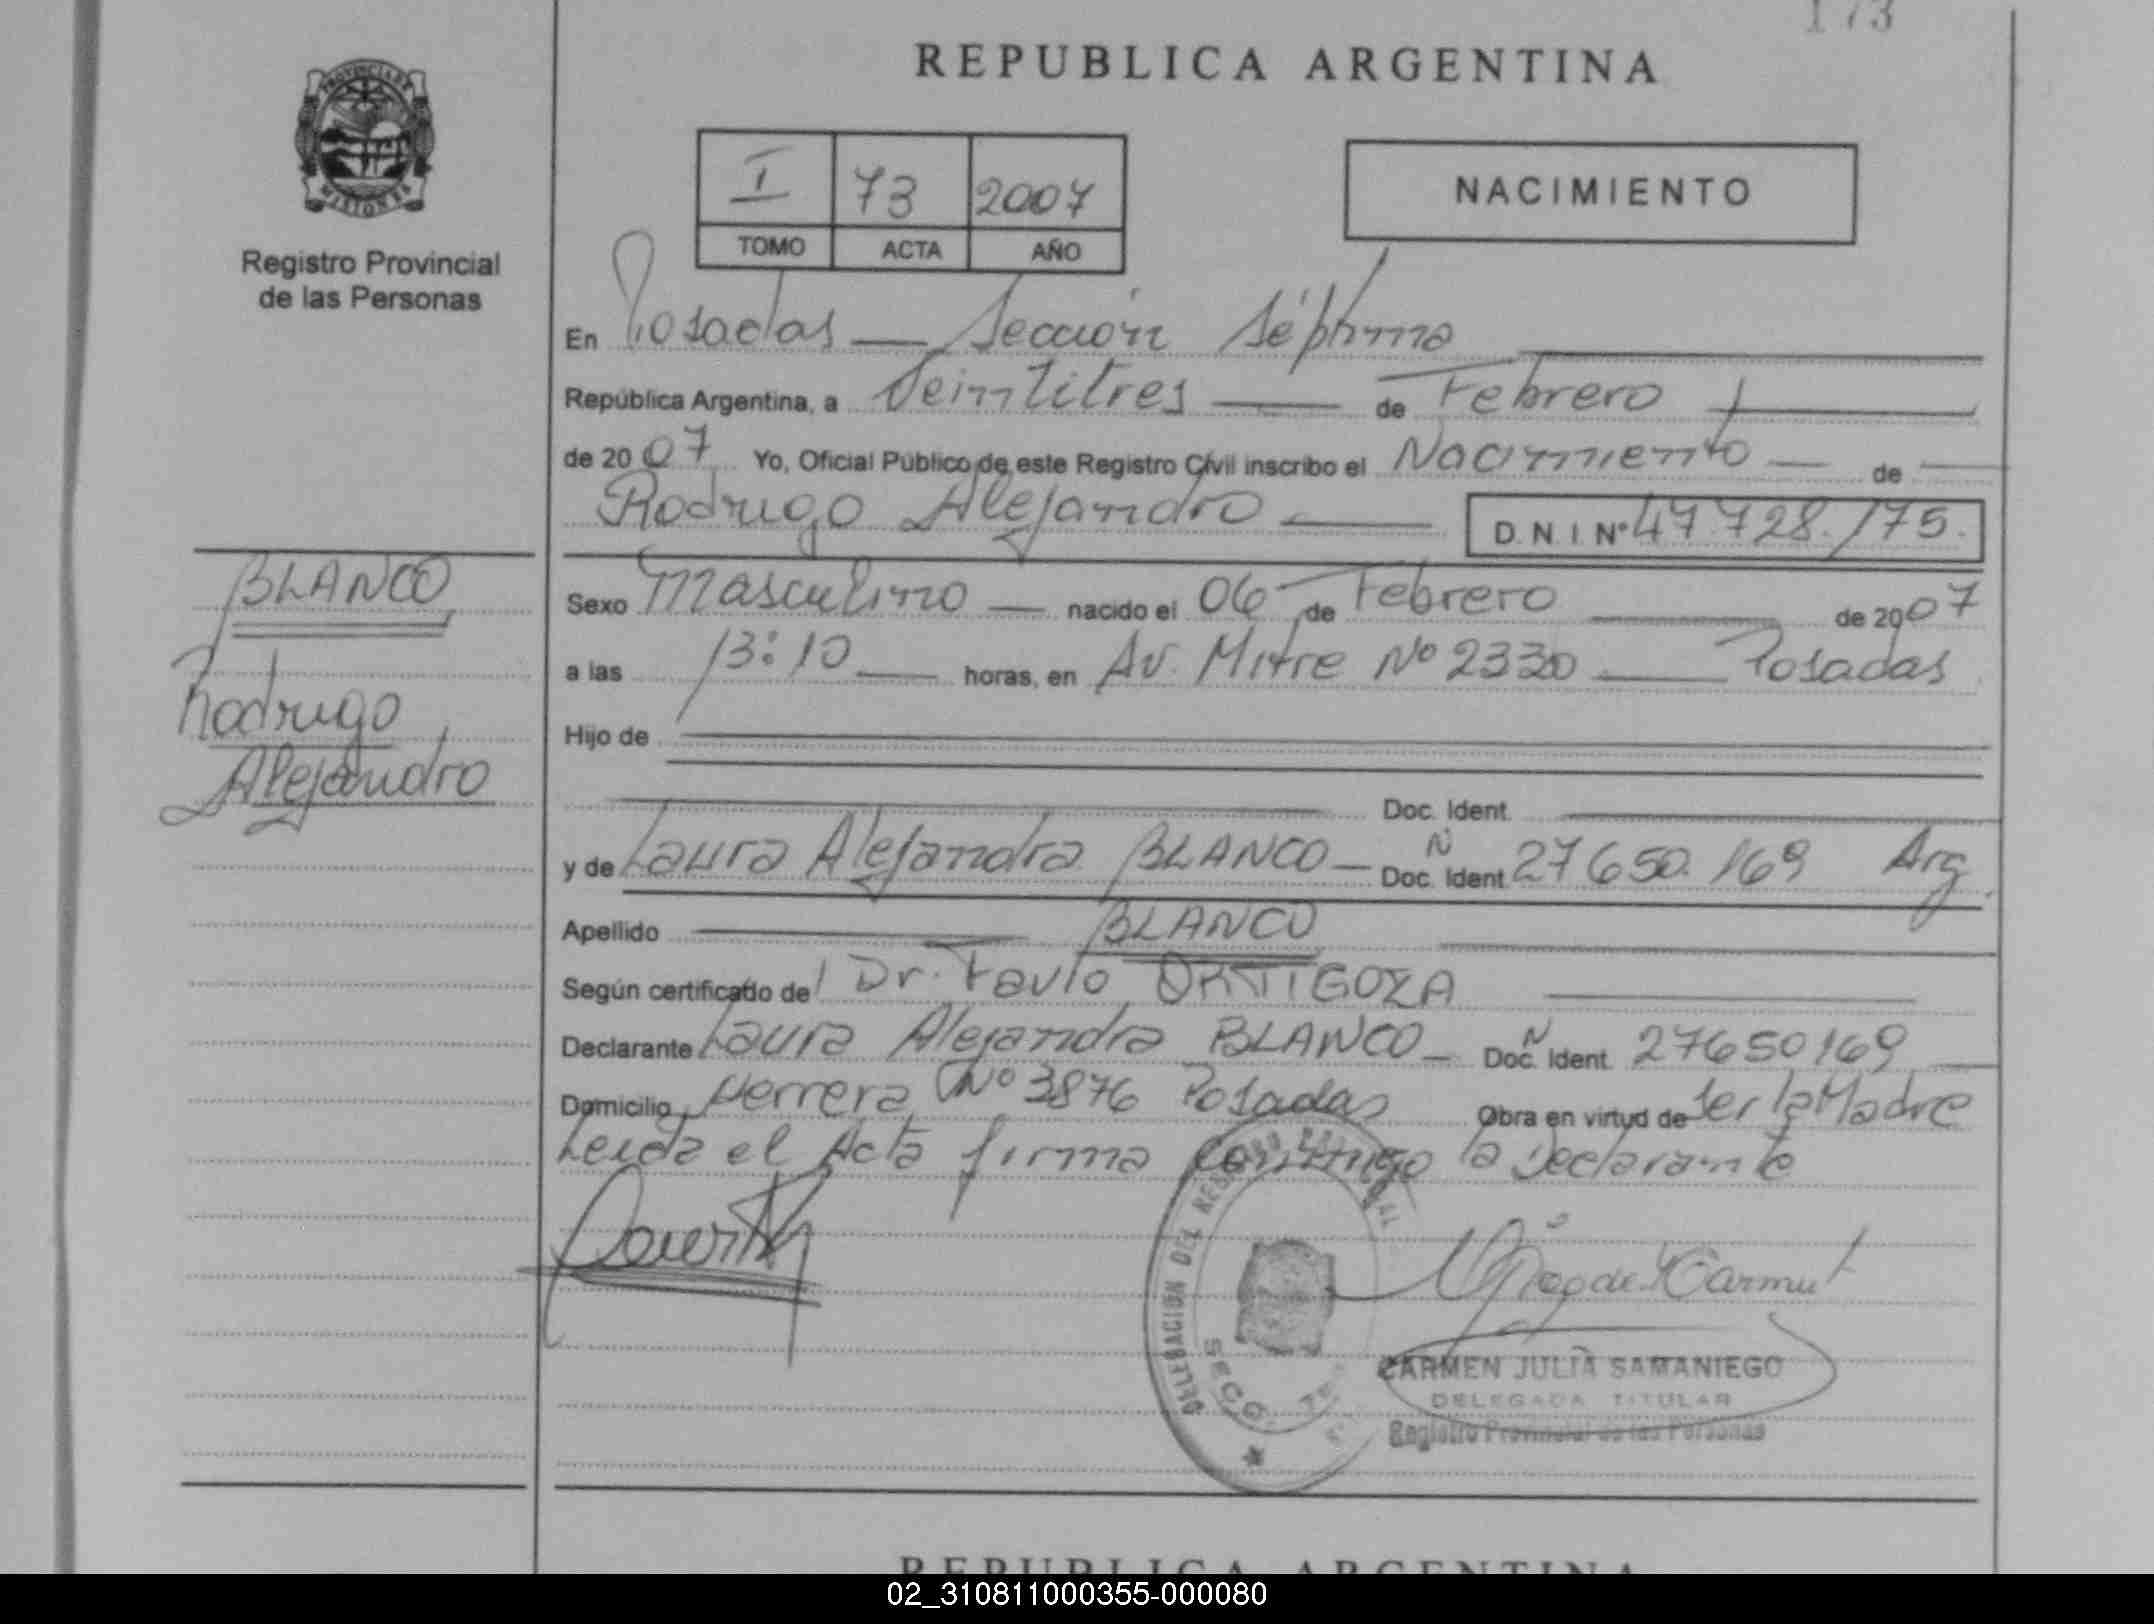 173
REPUBLICA ARGENTINA
PROVINCIA DE
MISIONES
Registro Provincial
de las Personas
I 73 2007
TOMO ACTA AÑO
NACIMIENTO
En Posadas — Sección Séptima
República Argentina, a Veintitres — de Febrero
de 2007 Yo, Oficial Público de este Registro Civil inscribo el Nacimiento — de
Rodrigo Alejandro — D.N.I Nº 47.728.175.
BLANCO
Rodrigo
Alejandro
Sexo Masculino — nacido el 06 de Febrero de 2007
a las 13:10 — horas, en Av. Mitre Nº 2330 — Posadas
Hijo de
Doc. Ident.
y de Laura Alejandra BLANCO — Doc. Ident. Ñ 27650.169 Arg.
Apellido BLANCO
Según certificado del Dr. Favio ORTIGOZA
Declarante Laura Alejandra BLANCO — Doc. Ident. Ñ 27650169
Domicilio Herrera Nº 3876 Posadas Obra en virtud de ser la Madre
Leída el Acta firma conmigo la Declarante
DELEGACION DEL REGISTRO PROVINCIAL
SECC.
CARMEN JULIA SAMANIEGO
DELEGADA TITULAR
Registro Provincial de las Personas
REPUBLICA ARGENTINA
02_310811000355-000080